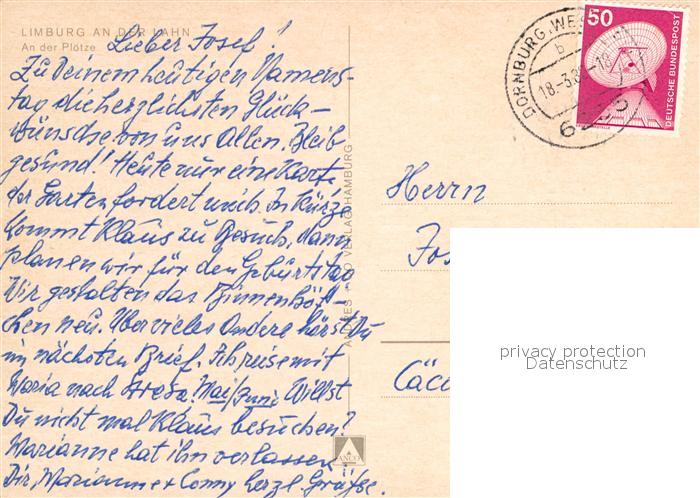 LIMBURG AN DER LAHN
An der Plötze
Lieber Josef!
Zu Deinem heutigen Namens-
tag die herzlichsten Glück-
wünsche von uns Allen. Bleib
gesund! Heute nur eine Karte
der Garten fordert mich. In Kürze
kommt Klaus zu Besuch, dann
planen wir für den Geburtstag
Wir gestalten das Binnenhöf-
chen neu. Über vieles Andere hörst Du
im nächsten Brief. Ich reise mit
Maria nach Arosa. Mai/Juni Willst
Du nicht mal Klaus besuchen?
Marianne hat ihn verlassen.
Dir, Marianne + Conny herzl. Grüße.
VERLAG HAMBURG
ANCO
DORNBURG, WES
b
18.-3.8
-18
50
DEUTSCHE BUNDESPOST
Herrn
Jos
Cäc
privacy protection
Datenschutz